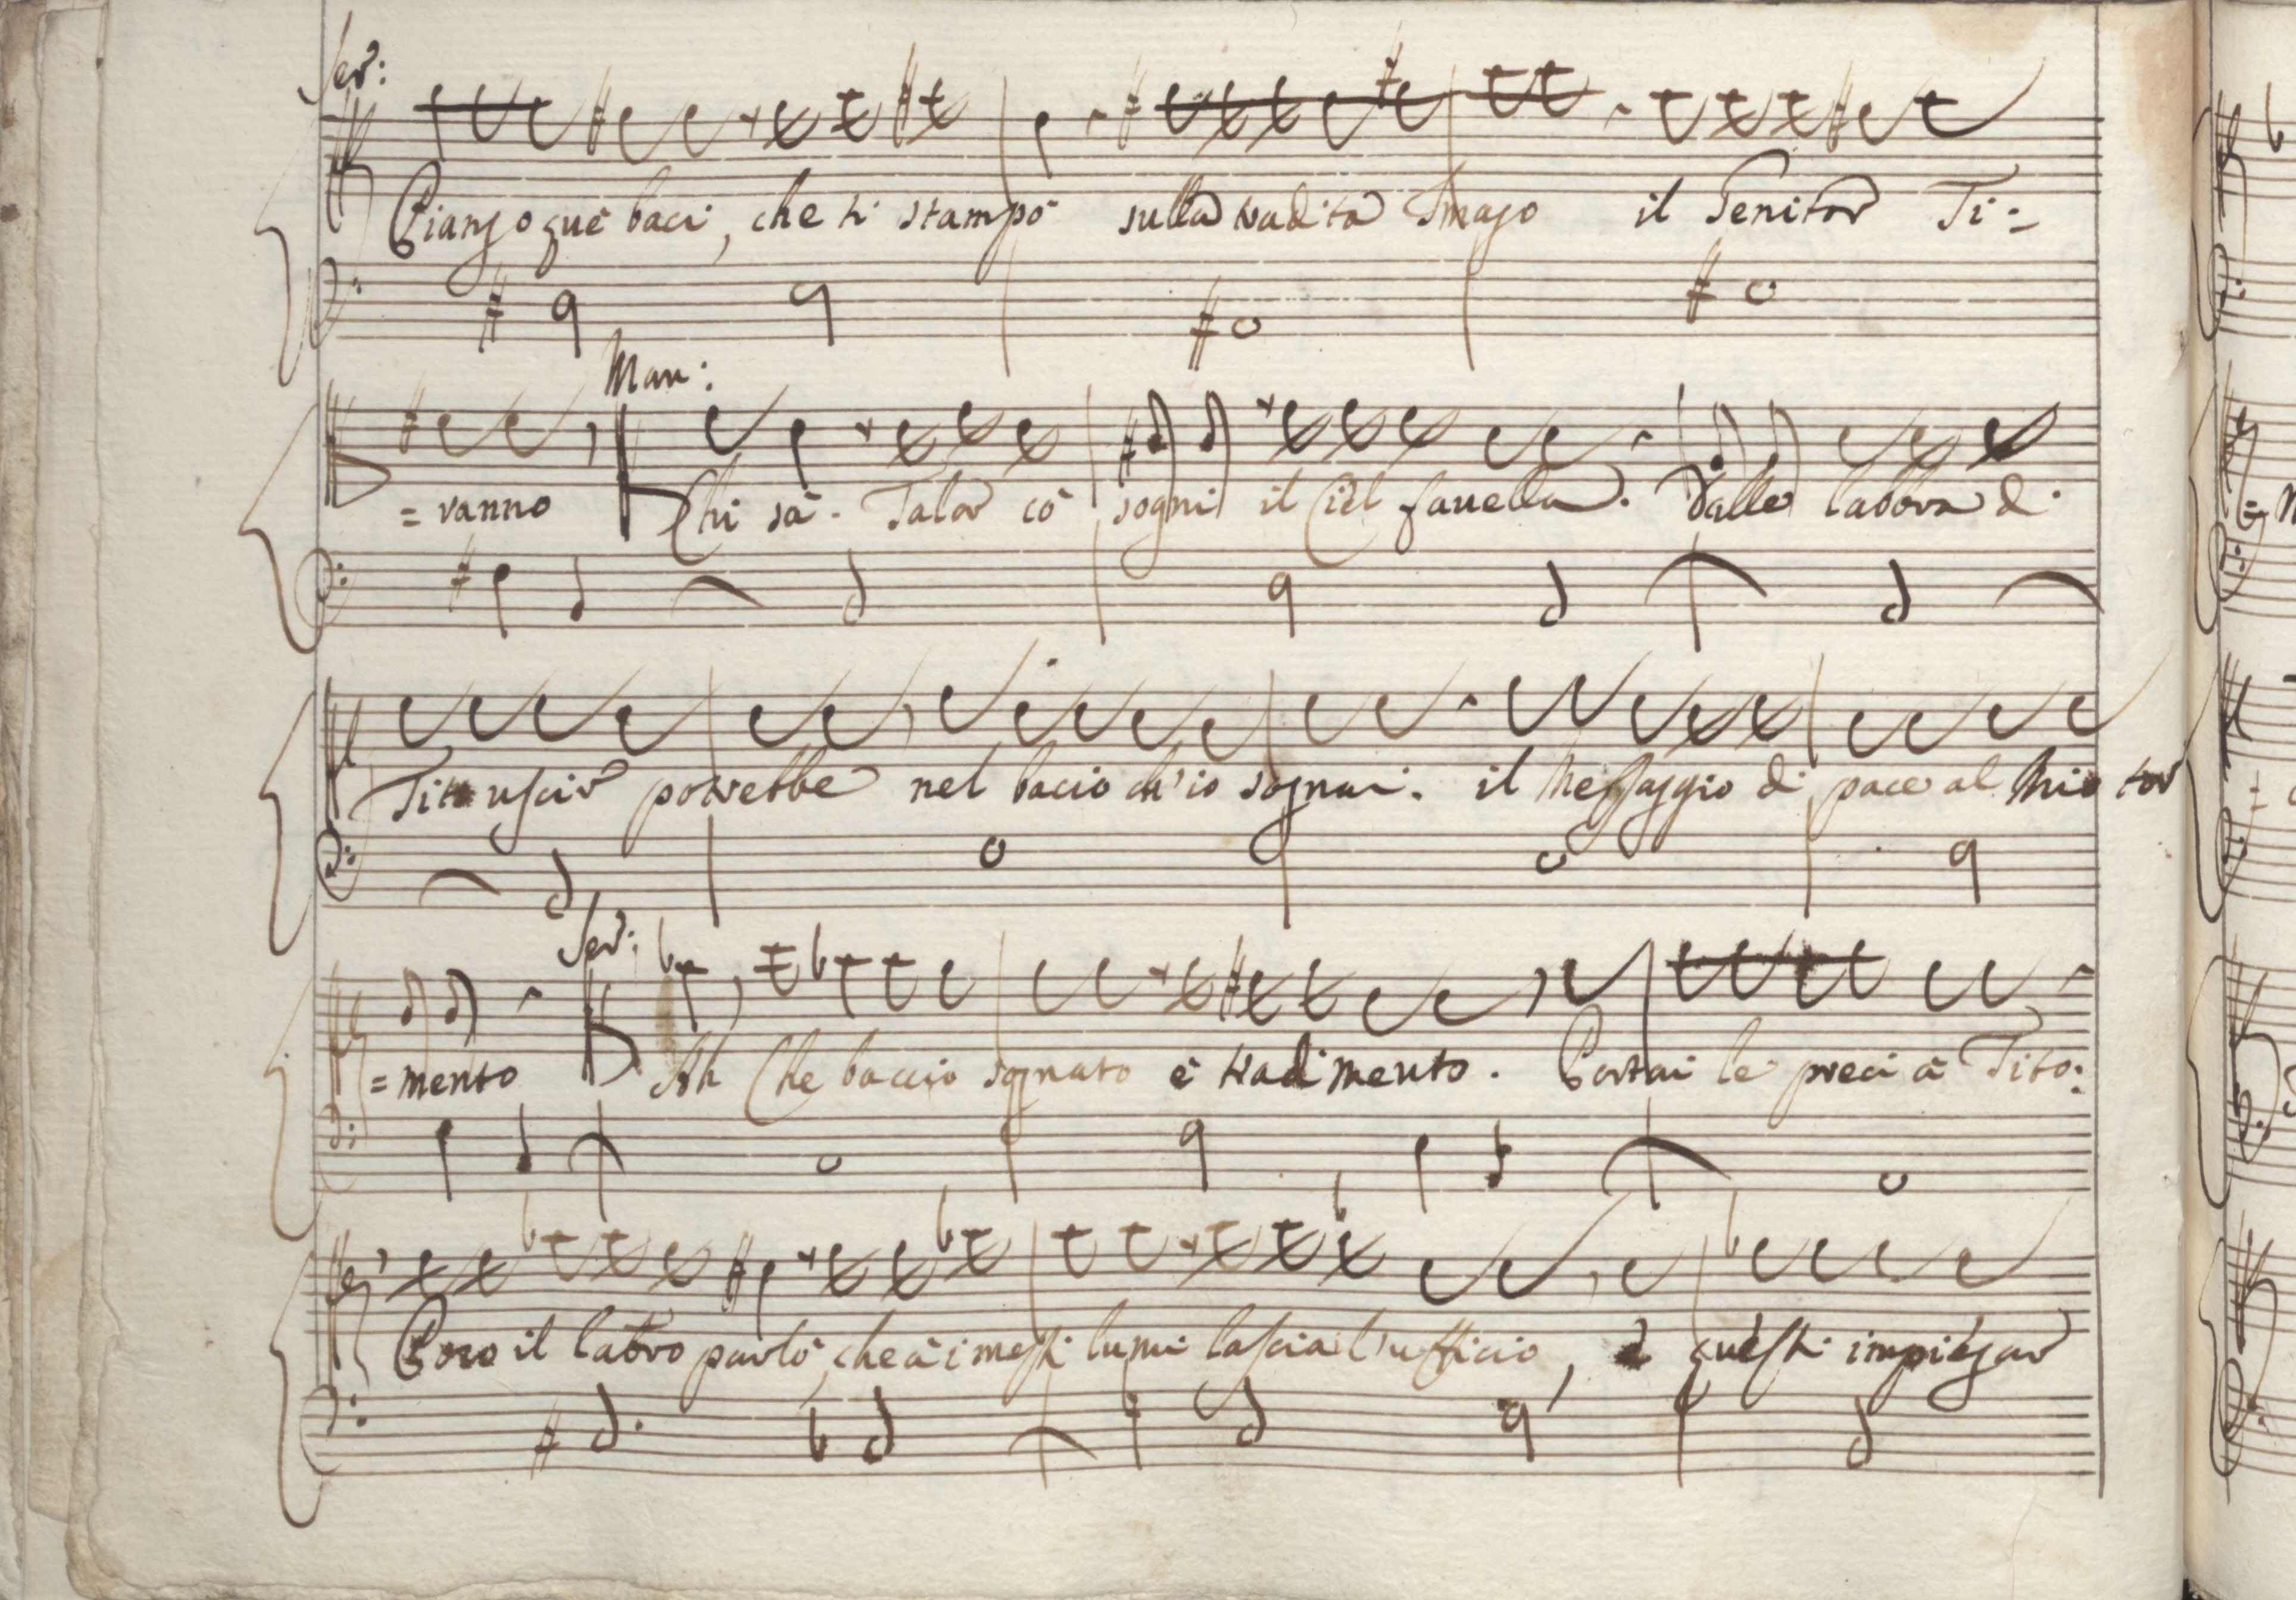 Ser:
Piango què baci, che ti stampò sulla tradita Imago il Genitor Ti=
Man:
=vanno Chi sà. Talor cò sogni il Ciel fauella. Dalle labbra di
Tito uscir potrebbe nel bacio ch'io sognai. il Messaggio di pace al Mio tor
Ser:
=mento Ah Che baccio sognato è tradimento. Portai le preci à Tito:
Poco il labro parlò, che à i mesti lumi lascia l'ufficio, e questi impiegar